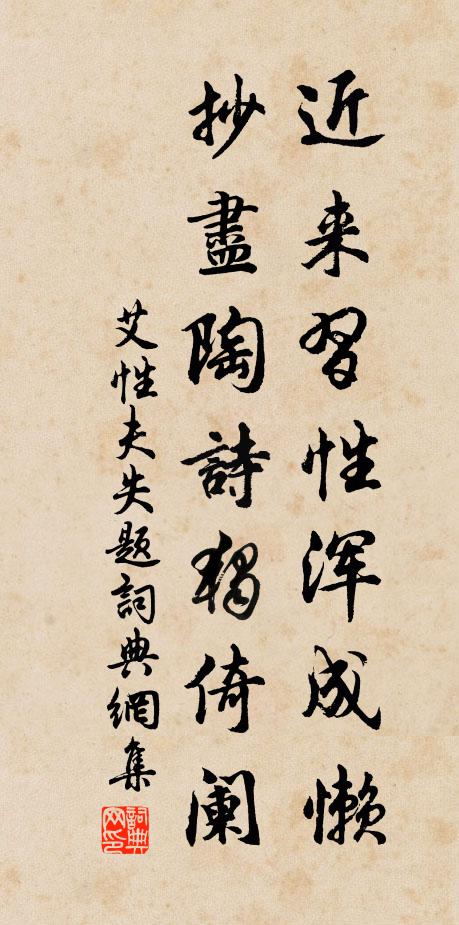 近来習性浑成懒
抄盡陶詩獨倚阑
艾性夫失题詞典網集
詞典网印